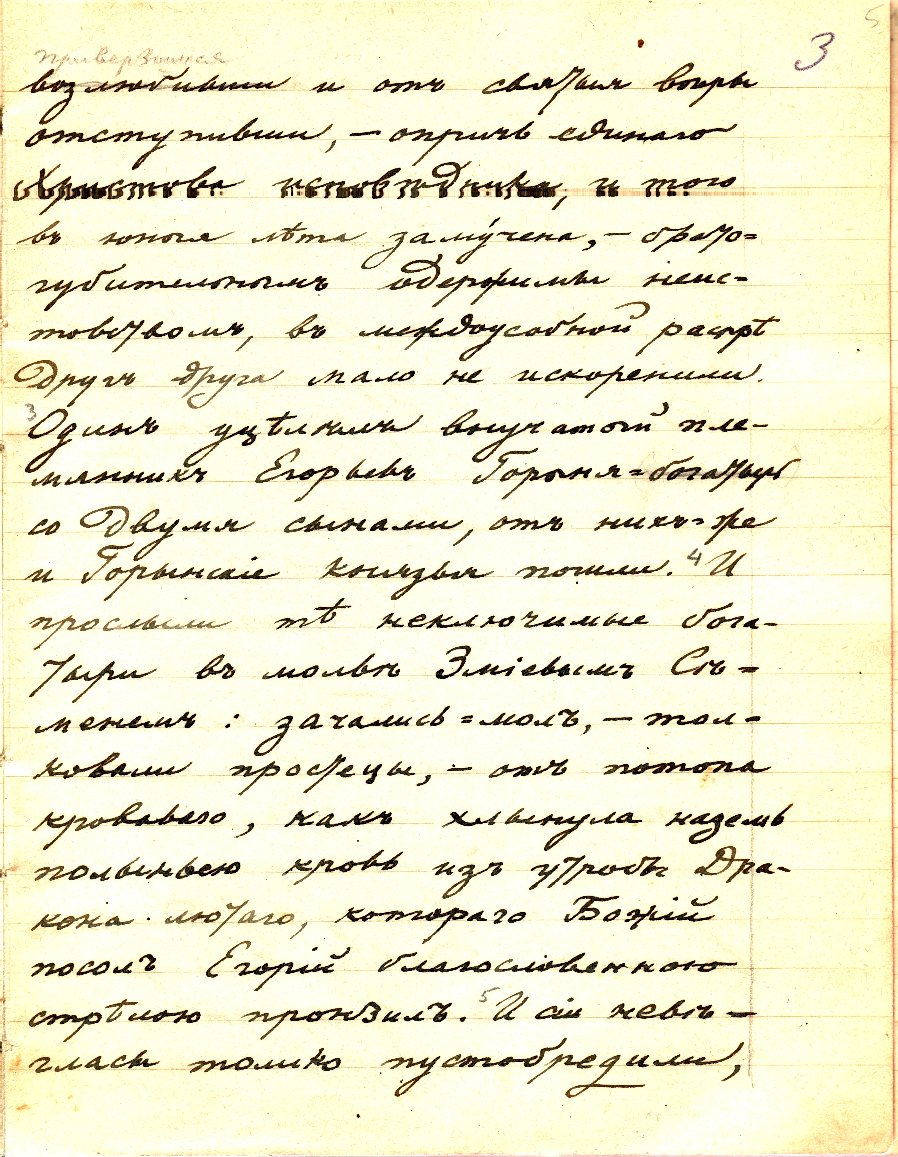 3
5
привергшися
возлюбивши и отъ святыя вѣры
отступивши, – опричь единаго
Христова исповѣдника, и того
въ юныя лѣта замучена, – брато=
губительнымъ одержимы неис-
товствомъ, въ междоусобной распрѣ
Другъ друга мало не искоренили.
3 Одинъ уцѣлѣлъ внучатый пле-
мянникъ Егорьевъ Горыня=богатырь
со двумя сынами, отъ нихъ=же
и Горынскіе князья пошли. 4 И
прослыли тѣ неключимые бога-
тыри въ молвѣ Зміевымъ Сѣ=
менемъ: зачались=молъ, – тол-
ковали простецы, – отъ потопа
кроваваго, какъ хлынула наземь
полыньею кровь изъ утробы Дра-
кона лютаго, котораго Божій
посолъ Егорій благословенною
стрѣлою пронзилъ. 5 И сіи невѣ-
гласы толико пустобредили,